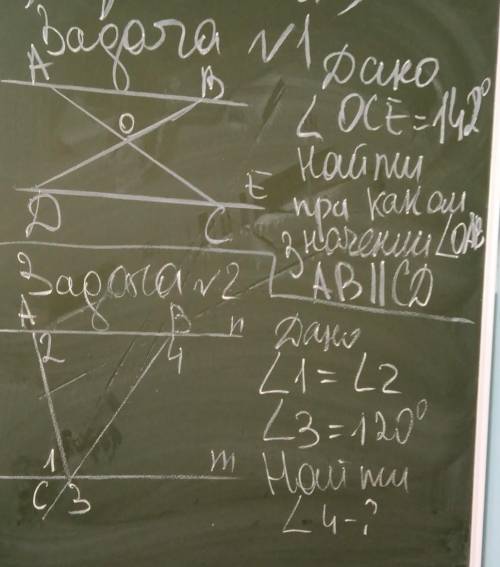 Задача №1
A B
O
D C E
Дано
∠ OCE = 142°
Найти
при каком
значении ∠OAB
AB || CD
Задача №2
A B n
2 4
1 m
C 3
Дано
∠1 = ∠2
∠3 = 120°
Найти
∠4 - ?